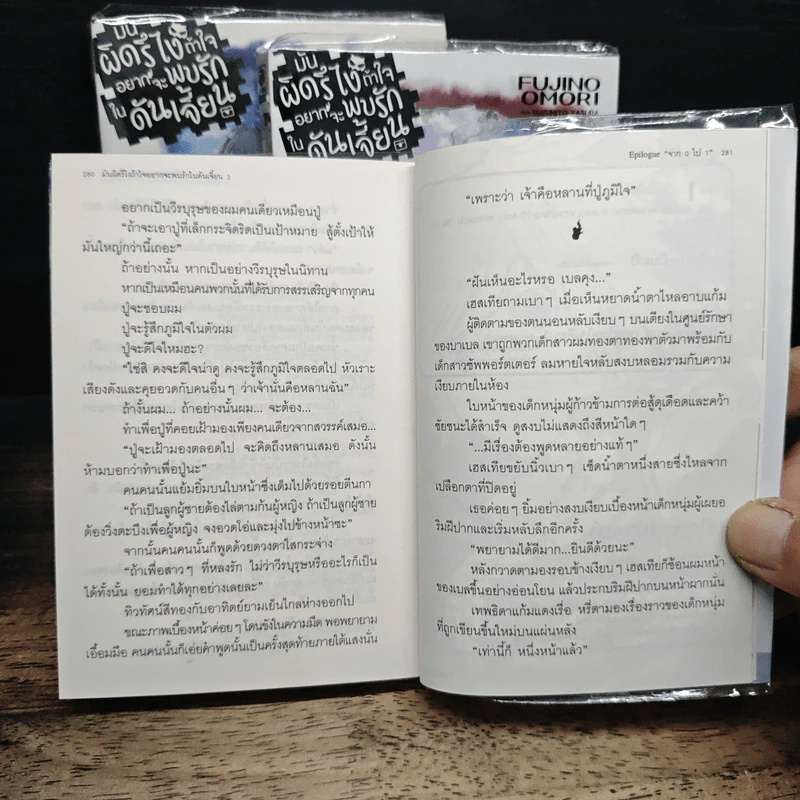 มัน
ผิดรึไง
ถ้าใจ
อยากจะพบรัก
ใน
ดันเจี้ยน
มัน
ผิดรึไง
ถ้าใจ
อยากจะพบรัก
ใน
ดันเจี้ยน
FUJINO
OMORI
SUZUHITO YASUDA
280 มันผิดรึไงถ้าใจอยากจะพบรักในดันเจี้ยน 3
อยากเป็นวีรบุรุษของผมคนเดียวเหมือนปู่
“ถ้าจะเอาปู่ที่เล็กกระจิดริดเป็นเป้าหมาย สู้ตั้งเป้าให้
มันใหญ่กว่านี้เถอะ”
ถ้าอย่างนั้น หากเป็นอย่างวีรบุรุษในนิทาน
หากเป็นเหมือนคนพวกนั้นที่ได้รับการสรรเสริญจากทุกคน
ปู่จะชอบผม
ปู่จะรู้สึกภูมิใจในตัวผม
ปู่จะดีใจไหมฮะ?
“ใช่สิ คงจะดีใจน่าดู คงจะรู้สึกภูมิใจตลอดไป หัวเราะ
เสียงดังและคุยอวดกับคนอื่นๆ ว่าเจ้านั่นคือหลานฉัน”
ถ้างั้นผม... ถ้าอย่างนั้นผม... จะต้อง...
ทำเพื่อปู่ที่คอยเฝ้ามองเพียงคนเดียวจากสวรรค์เสมอ...
“ปู่จะเฝ้ามองตลอดไป จะคิดถึงหลานเสมอ ดังนั้น
ห้ามบอกว่าทำเพื่อปู่นะ”
คนคนนั้นแย้มยิ้มบนใบหน้าซึ่งเต็มไปด้วยรอยตีนกา
“ถ้าเป็นลูกผู้ชายต้องไล่ตามก้นผู้หญิง ถ้าเป็นลูกผู้ชาย
ต้องวิ่งตะบึงเพื่อผู้หญิง จงอวดโอ่และมุ่งไปข้างหน้าซะ”
จากนั้นคนคนนั้นก็พูดด้วยดวงตาใสกระจ่าง
“ถ้าเพื่อสาวๆ ที่หลงรัก ไม่ว่าวีรบุรุษหรืออะไรก็เป็น
ได้ทั้งนั้น ยอมทำได้ทุกอย่างเลยละ”
ทิวทัศน์สีทองกับอาทิตย์ยามเย็นไกลห่างออกไป
ขณะภาพเบื้องหน้าค่อยๆ โดนขังในความมืด พอพยายาม
เอื้อมมือ คนคนนั้นก็เอ่ยคำพูดนั้นเป็นครั้งสุดท้ายภายใต้แสงนั่น
Epilogue “จาก 0 ไป 1” 281
“เพราะว่า เจ้าคือหลานที่ปู่ภูมิใจ”
“ฝันเห็นอะไรหรอ เบลคุง...”
เฮสเทียถามเบาๆ เมื่อเห็นหยาดน้ำตาไหลอาบแก้ม
ผู้ติดตามของตนนอนหลับเงียบๆ บนเตียงในศูนย์รักษา
ของบาเบล เขาถูกพวกเด็กสาวผมทองตาทองพาตัวมาพร้อมกับ
เด็กสาวซัพพอร์ตเตอร์ ลมหายใจหลับสงบหลอมรวมกับความ
เงียบภายในห้อง
ใบหน้าของเด็กหนุ่มผู้ก้าวข้ามการต่อสู้ดุเดือดและคว้า
ชัยชนะได้สำเร็จ ดูสงบไม่แสดงถึงสีหน้าใดๆ
“...มีเรื่องต้องพูดหลายอย่างแท้ๆ”
เฮสเทียขยับนิ้วเบาๆ เช็ดน้ำตาหนึ่งสายซึ่งไหลจาก
เปลือกตาที่ปิดอยู่
เธอค่อยๆ ยิ้มอย่างสงบเงียบเบื้องหน้าเด็กหนุ่มผู้เผยอ
ริมฝีปากและเริ่มหลับลึกอีกครั้ง
“พยายามได้ดีมาก...ยินดีด้วยนะ”
หลังกวาดตามองรอบข้างเงียบๆ เฮสเทียก็ช้อนผมหน้า
ของเบลขึ้นอย่างอ่อนโยน แล้วประกบริมฝีปากบนหน้าผากนั่น
เทพธิดาแก้มแดงเรื่อ หรี่ตามองเรื่องราวของเด็กหนุ่ม
ที่ถูกเขียนขึ้นใหม่บนแผ่นหลัง
“เท่านี้ก็ หนึ่งหน้าแล้ว”